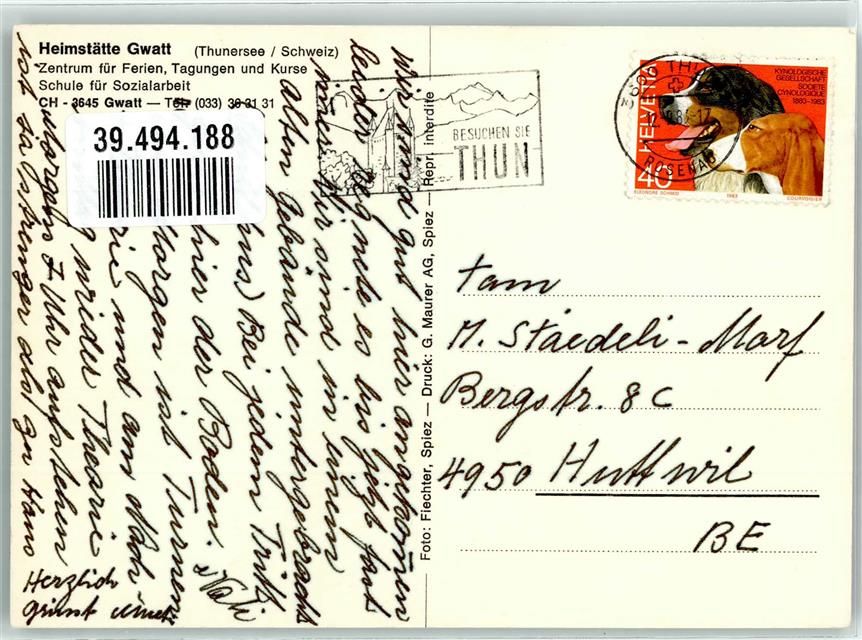 Heimstätte Gwatt (Thunersee / Schweiz)
Zentrum für Ferien, Tagungen und Kurse
Schule für Sozialarbeit
CH - 3645 Gwatt — Tel. (033) 36 31 31
39.494.188
BESUCHEN SIE
THUN
HELVETIA
40
KYNOLOGISCHE
GESELLSCHAFT
SOCIETE
CYNOLOGIQUE
1883-1983
ELEONORE SCHMID
1983
COURVOISIER
THUN
ROSENAU
Wir sind gut hier angekommen
leider regnete es bis jetzt fast
immer. Wir sind in einem
alten Gebäude untergebracht
Bei jedem Tritt
hier der Boden. Nach
Morgen ist Turnen
und am Nach
wieder Theorie
Morgens 7 Uhr aufstehen
ist ja strenger als zu Haus
Herzlich
grüsst
Foto: Fiechter, Spiez — Druck: G. Maurer AG, Spiez — Repr. interdite
Fam
M. Staedeli-Marf
Bergstr. 8c
4950 Huttwil
BE